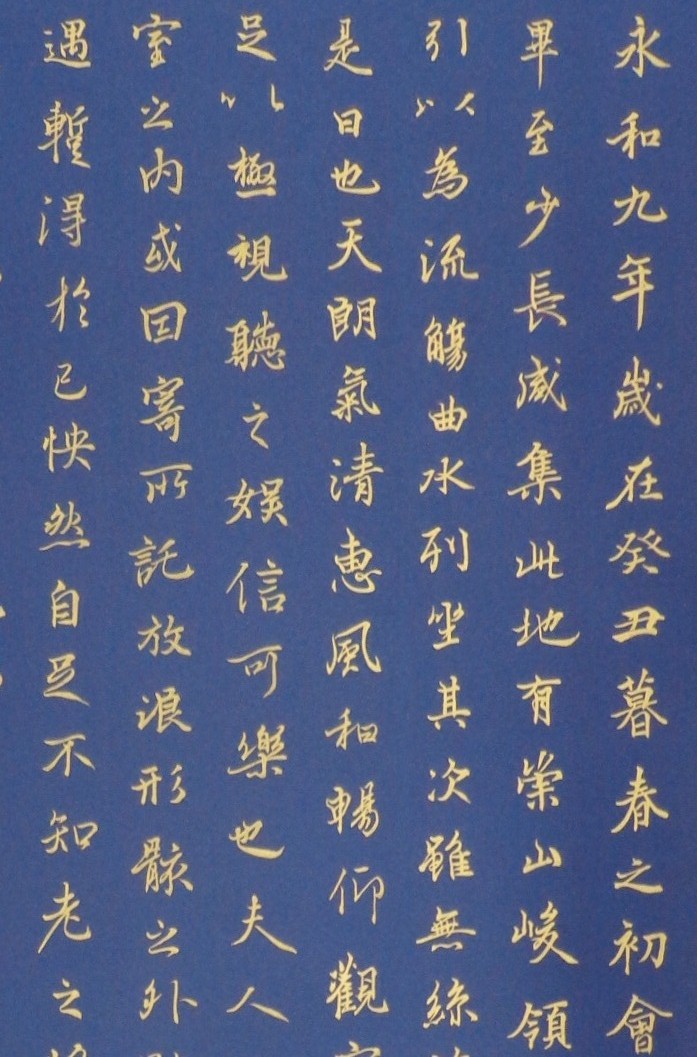 永和九年歲在癸丑暮春之初會
畢至少長咸集此地有崇山峻領
引以為流觴曲水列坐其次雖無絲
是日也天朗氣清惠風和暢仰觀
足以極視聽之娛信可樂也夫人
室之內或因寄所託放浪形骸之外
遇暫得於己怏然自足不知老之